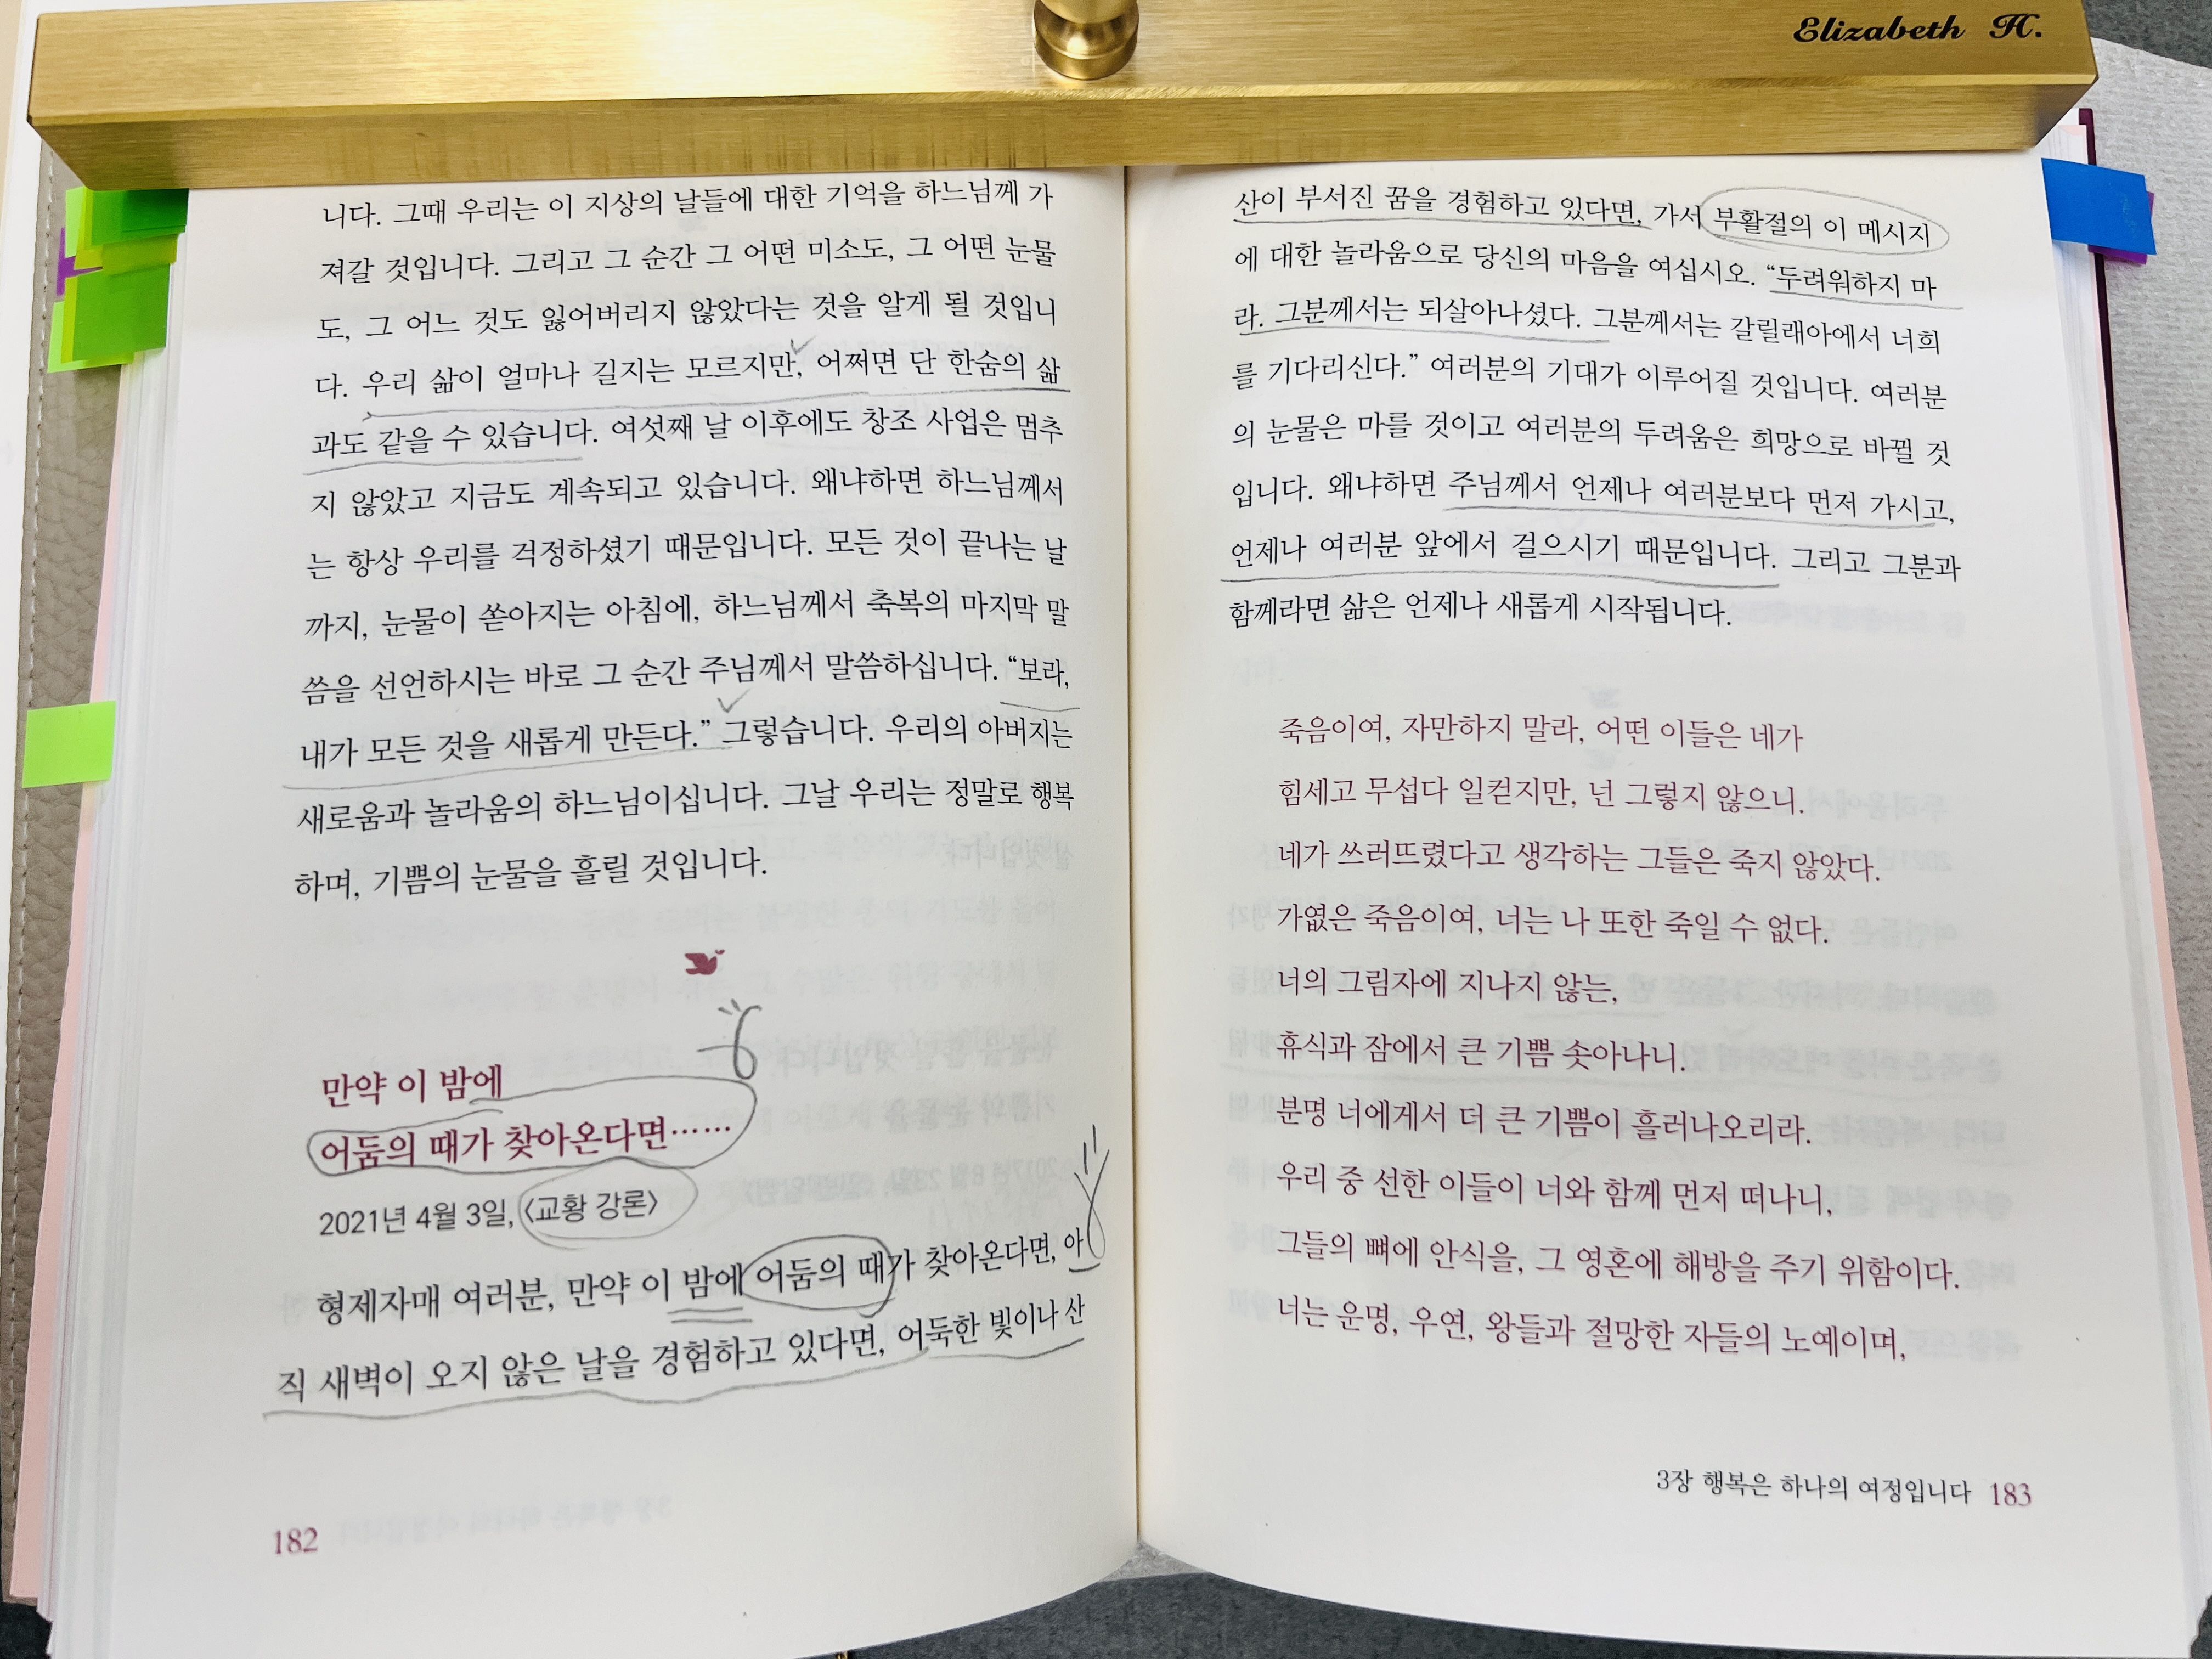 Elizabeth H.
니다. 그때 우리는 이 지상의 날들에 대한 기억을 하느님께 가
져갈 것입니다. 그리고 그 순간 그 어떤 미소도, 그 어떤 눈물
도, 그 어느 것도 잃어버리지 않았다는 것을 알게 될 것입니
다. 우리 삶이 얼마나 길지는 모르지만, 어쩌면 단 한숨의 삶
과도 같을 수 있습니다. 여섯째 날 이후에도 창조 사업은 멈추
지 않았고 지금도 계속되고 있습니다. 왜냐하면 하느님께서
는 항상 우리를 걱정하셨기 때문입니다. 모든 것이 끝나는 날
까지, 눈물이 쏟아지는 아침에, 하느님께서 축복의 마지막 말
씀을 선언하시는 바로 그 순간 주님께서 말씀하십니다. “보라,
내가 모든 것을 새롭게 만든다.” 그렇습니다. 우리의 아버지는
새로움과 놀라움의 하느님이십니다. 그날 우리는 정말로 행복
하며, 기쁨의 눈물을 흘릴 것입니다.
만약 이 밤에
어둠의 때가 찾아온다면……
2021년 4월 3일, 〈교황 강론〉
형제자매 여러분, 만약 이 밤에 어둠의 때가 찾아온다면, 아
직 새벽이 오지 않은 날을 경험하고 있다면, 어둑한 빛이나 산
182
산이 부서진 꿈을 경험하고 있다면, 가서 부활절의 이 메시지
에 대한 놀라움으로 당신의 마음을 여십시오. “두려워하지 마
라. 그분께서는 되살아나셨다. 그분께서는 갈릴래아에서 너희
를 기다리신다.” 여러분의 기대가 이루어질 것입니다. 여러분
의 눈물은 마를 것이고 여러분의 두려움은 희망으로 바뀔 것
입니다. 왜냐하면 주님께서 언제나 여러분보다 먼저 가시고,
언제나 여러분 앞에서 걸으시기 때문입니다. 그리고 그분과
함께라면 삶은 언제나 새롭게 시작됩니다.
죽음이여, 자만하지 말라, 어떤 이들은 네가
힘세고 무섭다 일컫지만, 넌 그렇지 않으니.
네가 쓰러뜨렸다고 생각하는 그들은 죽지 않았다.
가엾은 죽음이여, 너는 나 또한 죽일 수 없다.
너의 그림자에 지나지 않는,
휴식과 잠에서 큰 기쁨 솟아나니.
분명 너에게서 더 큰 기쁨이 흘러나오리라.
우리 중 선한 이들이 너와 함께 먼저 떠나니,
그들의 뼈에 안식을, 그 영혼에 해방을 주기 위함이다.
너는 운명, 우연, 왕들과 절망한 자들의 노예이며,
3장 행복은 하나의 여정입니다 183